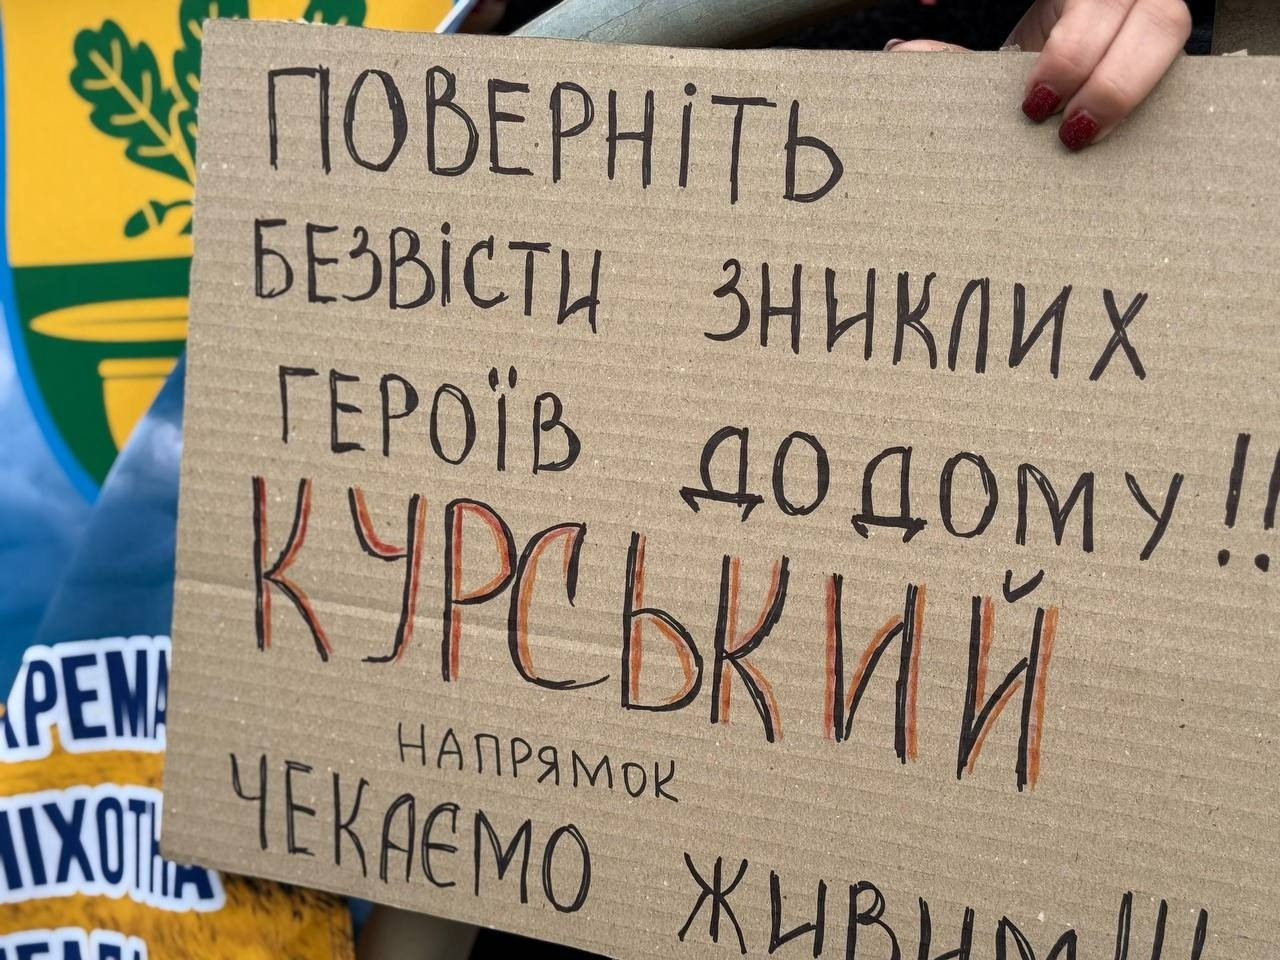 ПОВЕРНІТЬ
БЕЗВІСТИ ЗНИКЛИХ
ГЕРОЇВ ДОДОМУ!!
КУРСЬКИЙ
НАПРЯМОК
ЧЕКАЄМО ЖИВИМ!!!
КРЕМА
ПІХОТНА